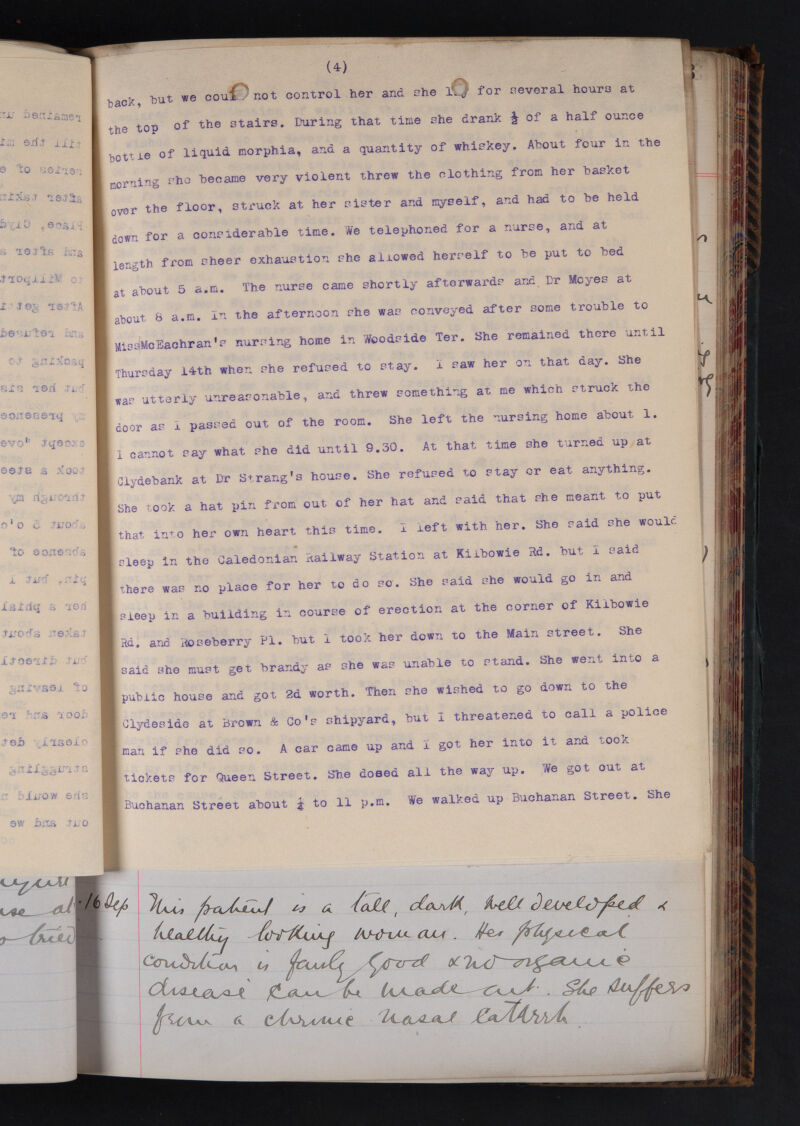 (4)
back, but we cou not control her and she for several hours at
the top of the stairs. During that time she drank ½ of a half ounce
bottle of liquid morphia, and a quantity of whiskey. About four in the
morning she became very violent threw the clothing from her basket
over the floor, struck at her sister and myself, and had to be held
down for a considerable time. We telephoned for a nurse, and at
length from sheer exhaustion she allowed herself to be put to bed
at about 5 a.m. The nurse came shortly afterwards and Dr Moyes at
about 8 a.m. In the afternoon she was conveyed after some trouble to
MissMcEachran's nursing home in Woodside Ter. She remained there until
Thursday 14th when she refused to stay. I saw her on that day. She
was utterly unreasonable, and threw something at me which struck the
door as I passed out of the room. She left the nursing home about 1.
I cannot say what she did until 9.30. At that time she turned up at
Clydebank at Dr Strang's house. She refused to stay or eat anything.
She took a hat pin from out of her hat and said that she meant to put
that into her own heart this time. I left with her. She said she would
sleep in the Caledonian Railway Station at Kilbowie Rd. but I said
there was no place for her to do so. She said she would go in and
sleep in a building in course of erection at the corner of Kilbowie
Rd. and Roseberry Pl. but I took her down to the Main street. She
said she must get brandy as she was unable to stand. She went into a
public house and got 2d worth. Then she wished to go down to the
Clydeside at Brown & Co's shipyard, but I threatened to call a police
man if she did so. A car came up and I got her into it and took
tickets for Queen Street. She dosed all the way up. We got out at
Buchanan Street about to 11 p.m. We walked up Buchanan Street. She
16 Sep This patient is a tall, dark, well developed &
healthy looking woman. Her physical
condition is fairly good & no organic
disease can be made out. She suffers
from a chronic nasal catarrh